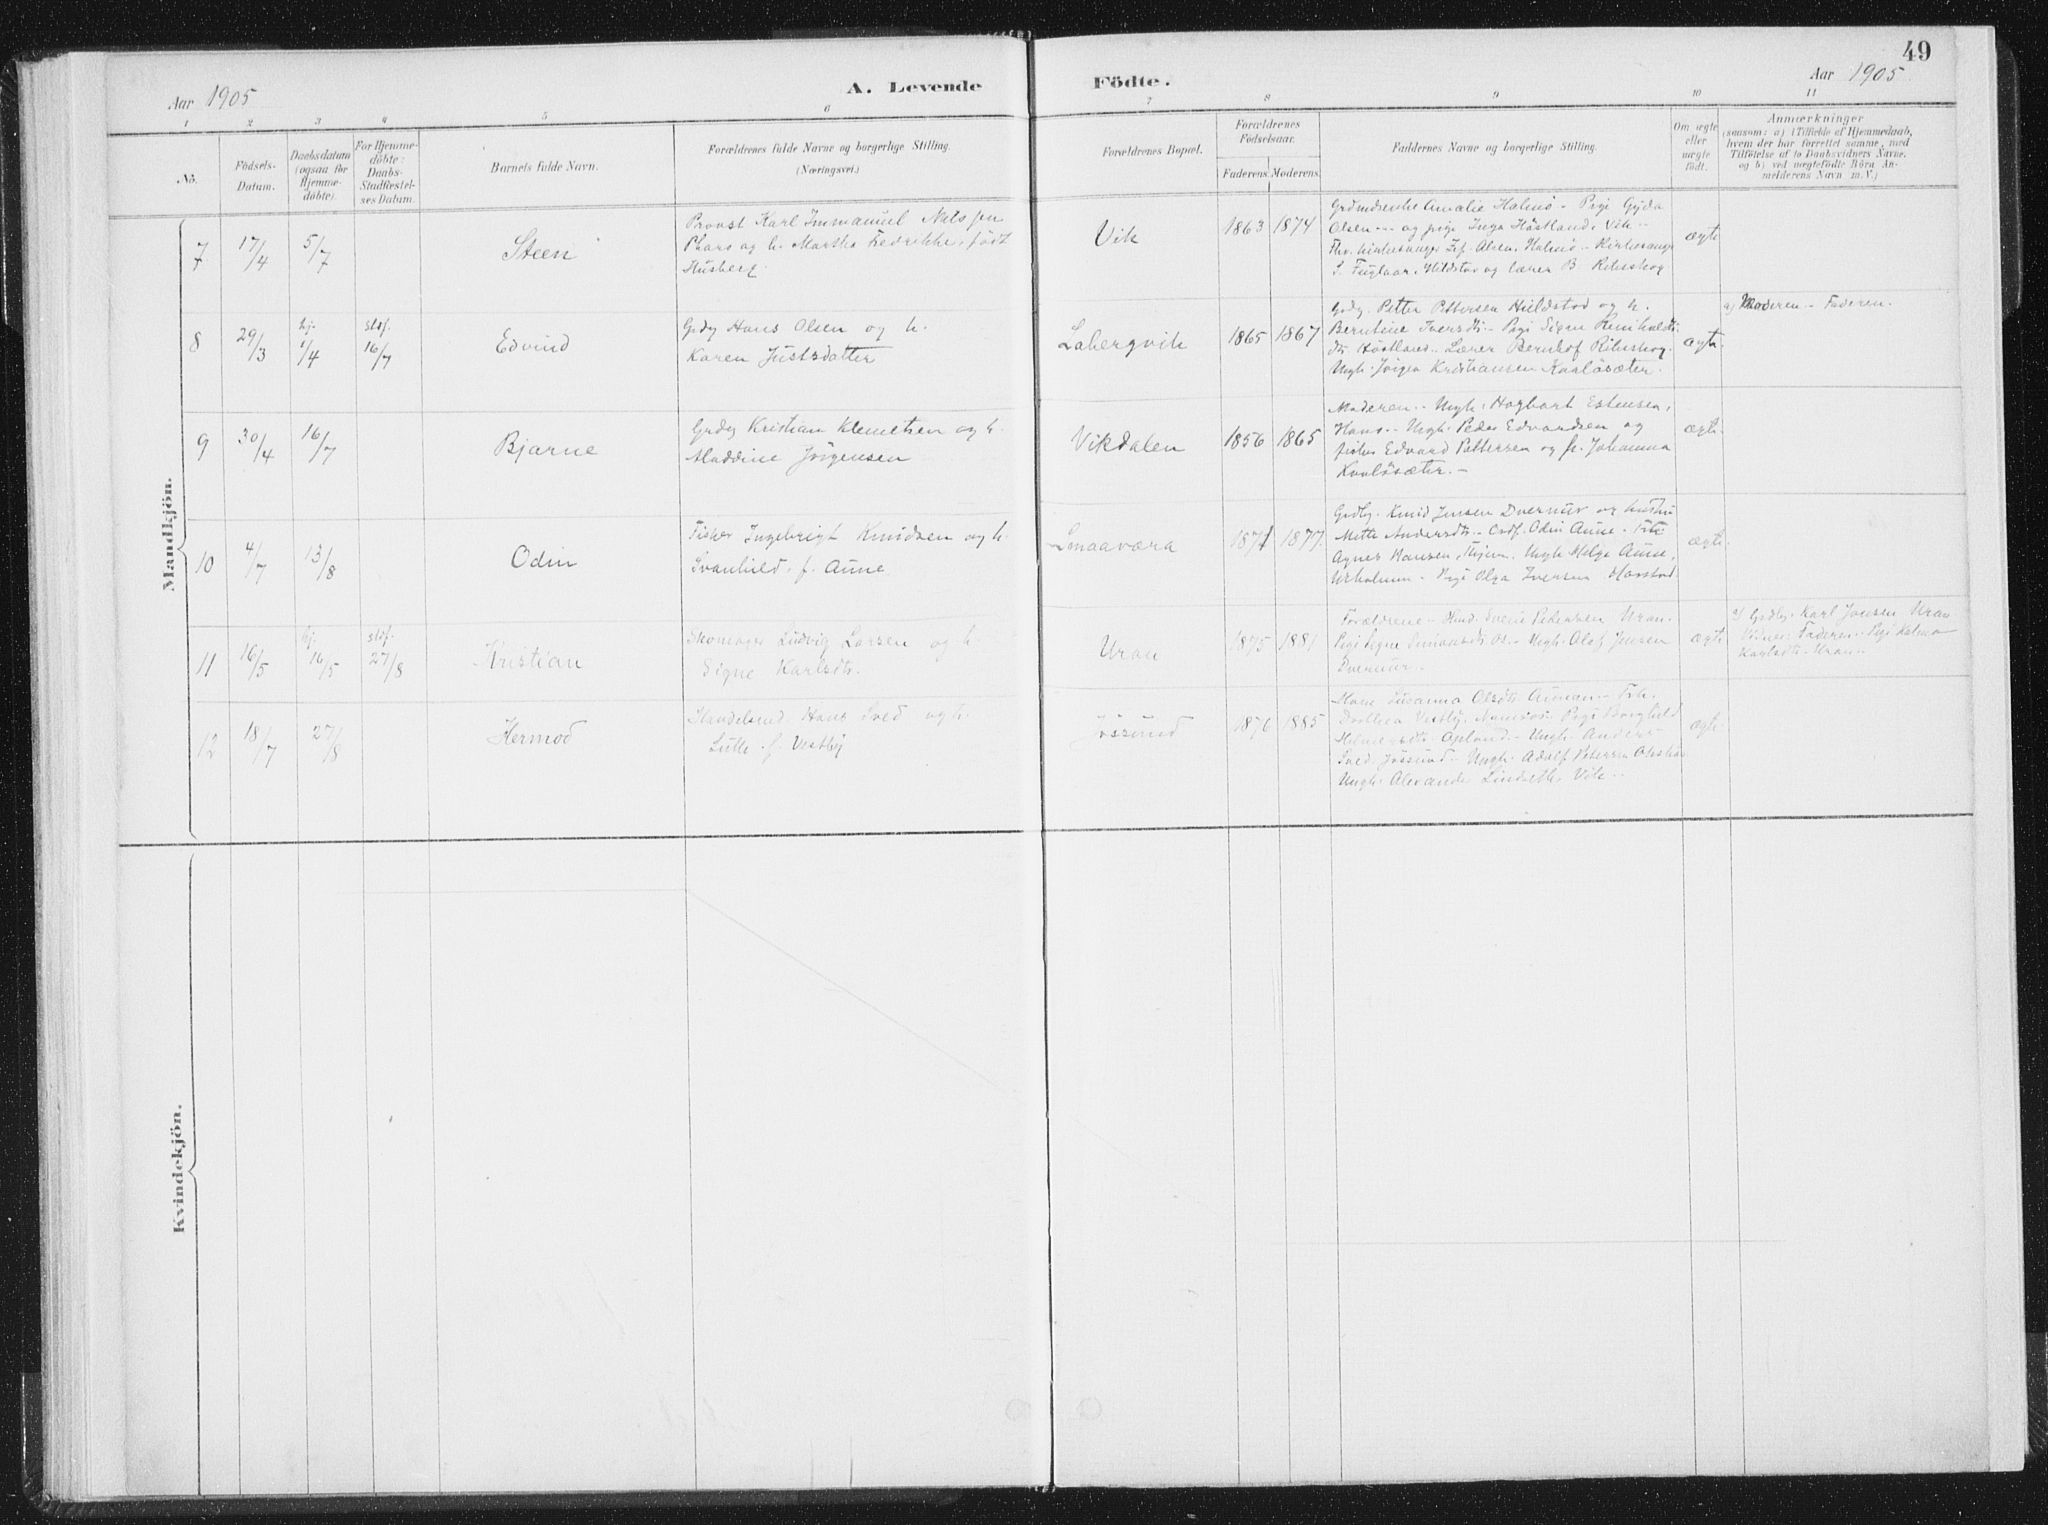 49
Aar 1905
A. Levende
Födte.
Aar 1905
1 2 3 4 5 6 7 8 9 10 11
No.
Födsels-
Datum.
Daabsdatum
(ogsaa for
Hjemme-
döbte).
For Hjemme-
döbte:
Daabs-
Stadfæstel-
ses Datum.
Barnets fulde Navn.
Forældrenes fulde Navne og borgerlige Stilling.
(Næringsvei.)
Forældrenes Bopæl.
Forældrenes
Födselsaar.
Faderens. Moderens.
Faddernes Navne og borgerlige Stilling.
Om ægte
eller
uægte
födt.
Anmærkninger
(saasom: a) i Tilfælde af Hjemmedaab,
hvem der har forrettet samme, med
Tilföielse af to Daabsvidners Navne.
og b) ved uægtefödte Börn An-
melderens Navn m. V.)
Mandkjön.
7 17/4 5/7 Steen
Provst Karl Immanuel Nalssen
Pharo og h. Martha Fredrikke, född
Husberg.
Vik 1863 1874
Amalie Halmö - Pige Gyda
Olsen - og pige Inga Höstland, Vik -
Olsen, Halmö - Kirkesanger
Fuglaar, Hildstad og lærer B. Ribsskog
ægte
8 29/3 hj. 1/4 staf. 16/7 Edvind
Grdbr Hans Olsen og h.
Karen Justsdatter
Labergvik 1865 1867
Grdbr. Petter Pettersen Hildstad og h.
Berntine Iversdtr. - Pige Signe Reinholds-
dtr. Höstland. - Lærer Bernhof Ribsskog.
Ungk. Jörgen Kristiansen Kvalösæter.
ægte.
a) Moderen - Faderen.
9 30/4 16/7 Bjarne
Grdbr Kristian Klemetsen og h.
Aladdine Jörgensen
Vikdalen 1856 1865
Moderen. - Ungk. Hagbart Estensen,
Ungk. Peder Edvardsen og
fisker Edvard Pettersen og h. Johanna
Kvalösæter. -
ægte.
10 4/7 13/8 Odin
Fisker Ingebrigt Knudsen og h.
Svanhild, f. Aune
Smaaværa 1871 1877.
Grdbr. Knud Jensen Dvernur og hustru
Mette Andersdtr. - Odin Aune -
Agnes Hansen, Ungk. Helge Aune,
Pige Olga Iversen Havstad.
ægte.
11 16/5 hj. 16/5 staf. 27/8 Kristian
Skomager Ludvig Larsen og h.
Signe Karlsdtr.
Uran 1875 1881
Forældrene - Svein Pedersen Uran -
Pige Signe Simonsdtr. - Ungk. Olaf Jensen
Dvernur. -
ægte.
a) Grdbr. Karl Jonsen Uran
Vidner: Faderen - Pige Kalma
Karlsdtr. Uran. -
12 18/7 27/8 Hermod
Handelsmd. Hans Sved og h.
Lulle f. Vestby
Jössund 1876 1885
Susanna Olsdtr. Aunan - Frk.
Dorthea Vestby, Namsos - Pige Borghild
Ungk. Anders
Sved, Jössund - Ungk. Adolf Petersen
Ungk. Alexander Lindseth, Vik. -
ægte.
Kvindekjön.